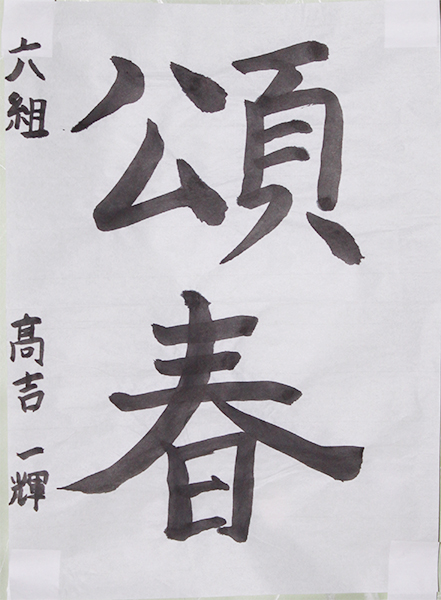 頌春
六組 髙吉一輝